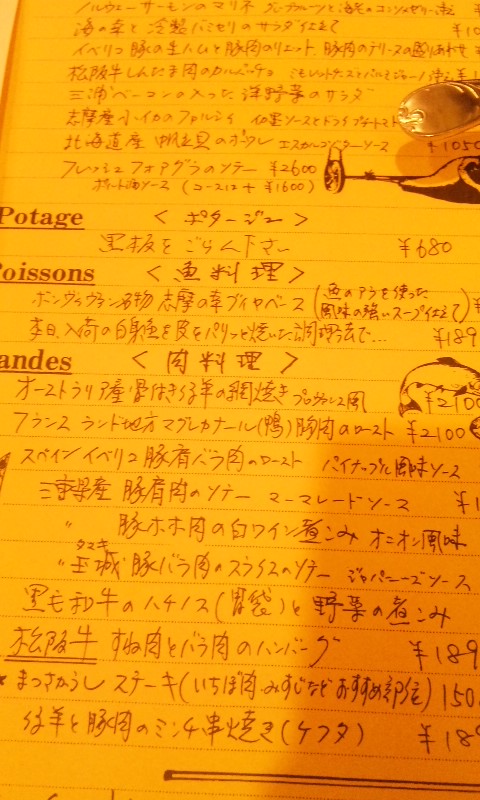 ノルウェーサーモンのマリネ グレープフルーツと海老のコンソメゼリー添え
海の幸と冷製バミセリのサラダ仕立て ¥10
イベリコ豚の生ハムと豚肉のリエット、豚肉のテリーヌの盛りあわせ
松阪牛しんたま肉のカルパッチョ ミモレットチーズとパルミジャーノ添え ¥1
三浦ベーコンの入った洋野菜のサラダ
志摩産小イカのファルシィ 仏国ソースとドライプチトマト
北海道産帆立貝のポワレ エスカルゴバターソース ¥1050
フレッシュフォアグラのソテー ¥2600
ポルト酒ソース (コースは+¥1600)
Potage 〈ポタージュ〉
黒板をごらん下さい ¥680
Poissons 〈魚料理〉
ボンヴィヴァン名物 志摩の幸ブイヤベース (魚のアラを使った風味の強いスープ仕立て) ¥
本日入荷の白身魚を皮をパリッと焼いた調理法で… ¥189
andes 〈肉料理〉
オーストラリア産骨付き仔羊の網焼き プロヴァンス風 ¥2100
フランス ランド地方マグレカナール(鴨)胸肉のロースト ¥2100
スペイン イベリコ豚肩バラ肉のロースト パイナップル風味ソース
三重県産 豚肩肉のソテー マーマレードソース ¥1
〃 豚ホホ肉の白ワイン煮こみ オニオン風味
〃 玉城(タマキ)豚バラ肉のスライスのソテー ジャパニーズソース
黒毛和牛のハチノス(胃袋)と野菜の煮こみ
松阪牛 すね肉とバラ肉のハンバーグ ¥189
まつさかうし ステーキ(いちぼ肉、みすじなどおすすめ部位) 150
仔羊と豚肉のミンチ串焼き(ケフタ) ¥189